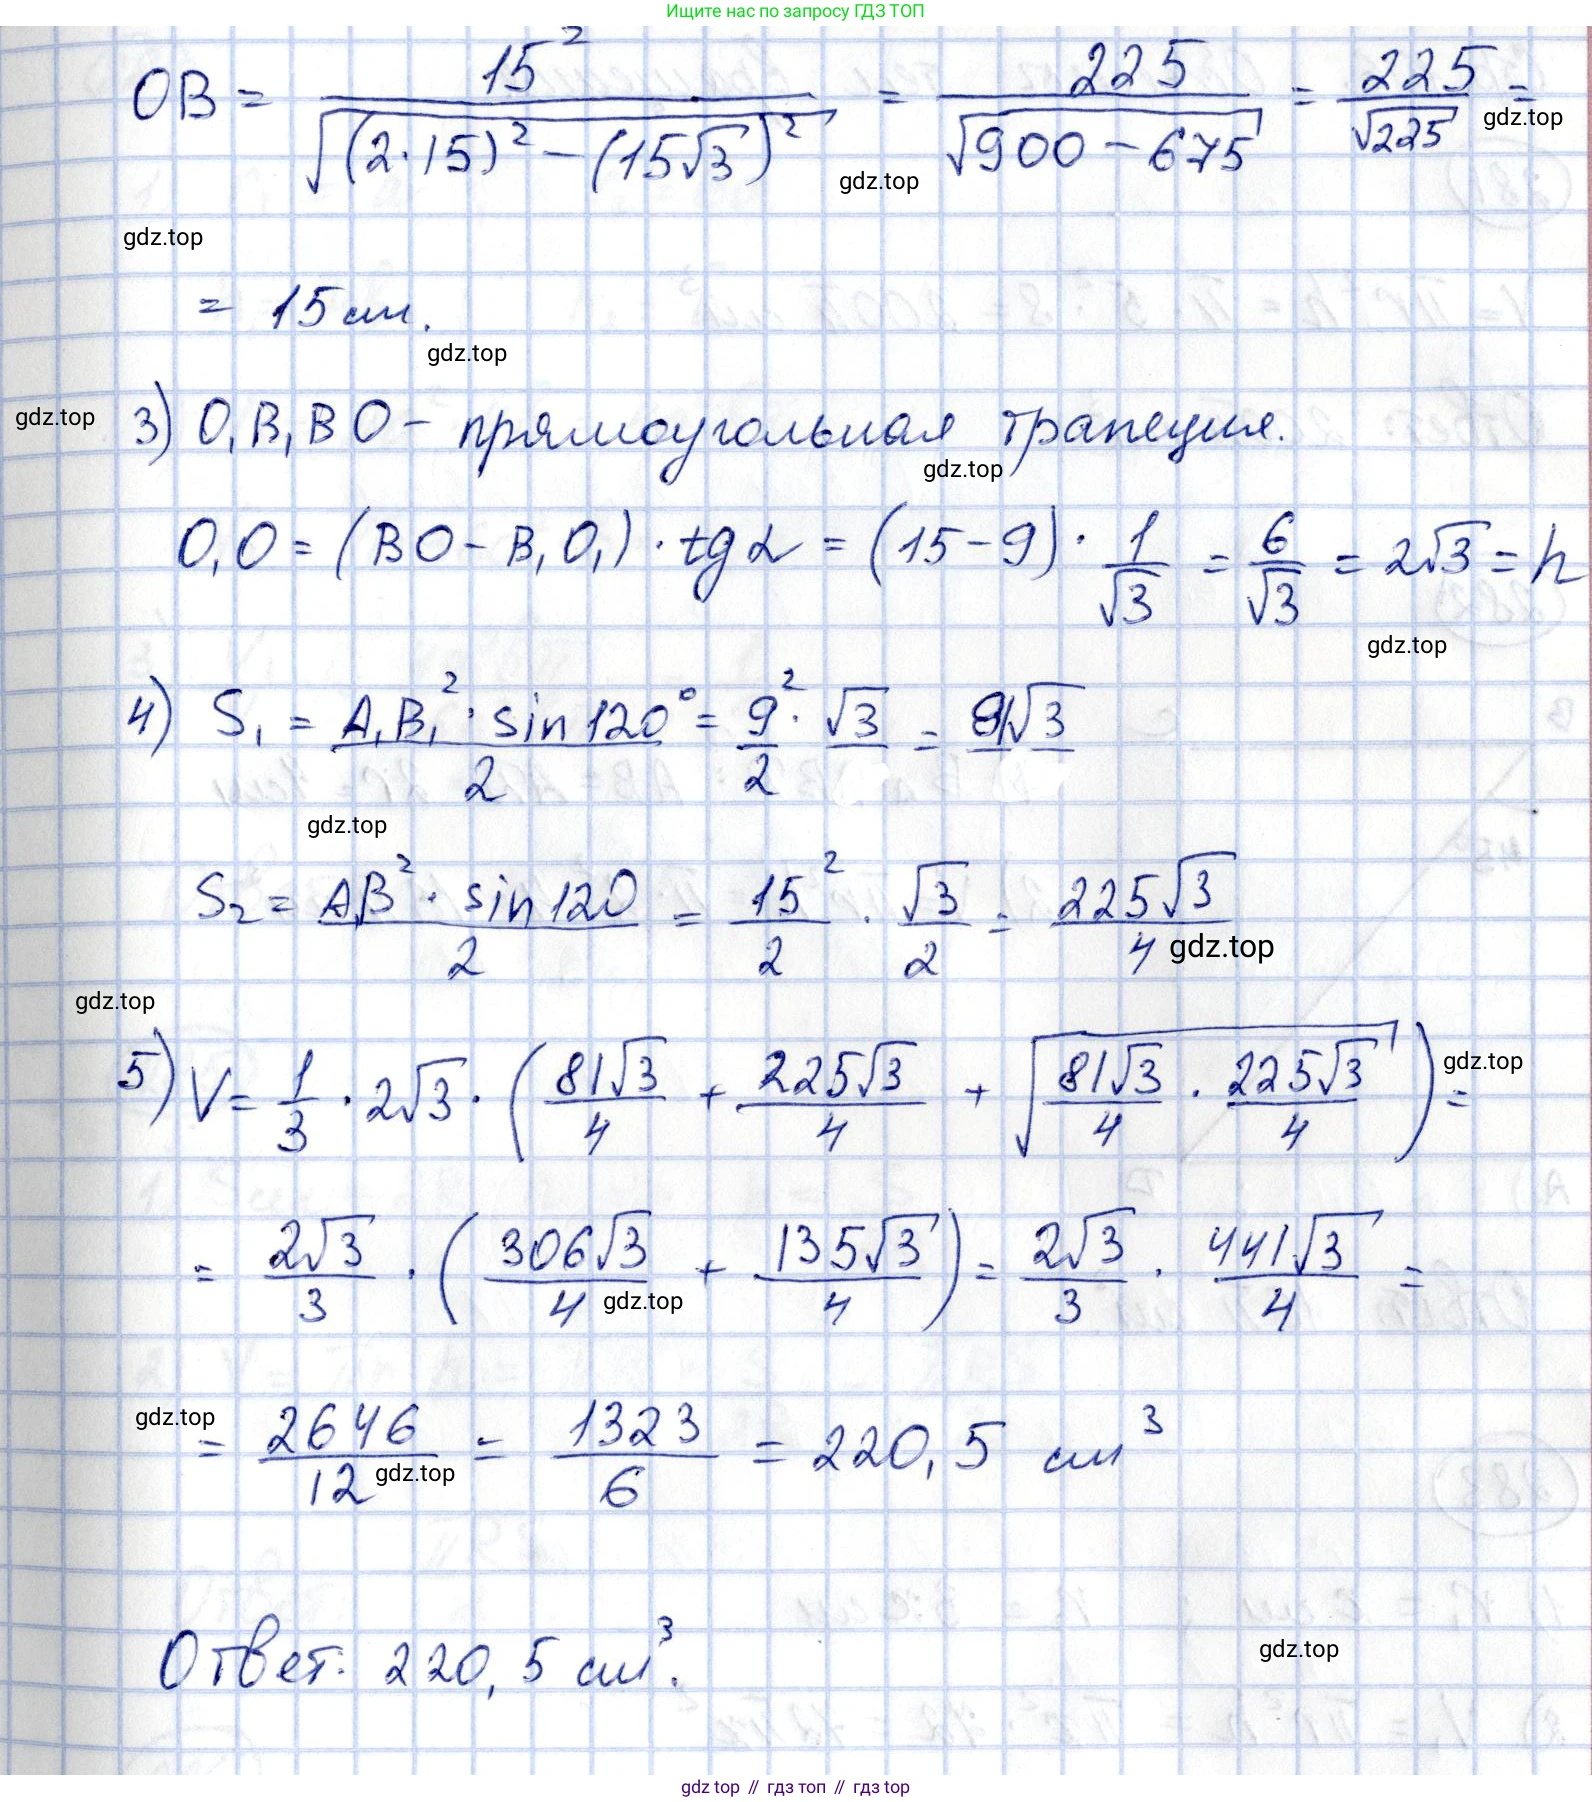 Ищите нас по запросу ГДЗ ТОП
OB = 15² / √((2·15)² − (15√3)²) = 225 / √(900 − 675) = 225 / √225 =
gdz.top
gdz.top
gdz.top
= 15 см.
gdz.top
gdz.top
3) O₁B₁BO − прямоугольная трапеция.
gdz.top
O₁O = (BO − B₁O₁) · tg α = (15 − 9) · 1/√3 = 6/√3 = 2√3 = h
gdz.top
4) S₁ = A₁B₁² · sin 120° / 2 = 9²/2 · √3 = 81√3
gdz.top
S₂ = AB² · sin 120 / 2 = 15²/2 · √3/2 = 225√3/4
gdz.top
gdz.top
5) V = 1/3 · 2√3 · (81√3/4 + 225√3/4 + √(81√3/4 · 225√3/4)) =
gdz.top
= 2√3/3 · (306√3/4 + 135√3/4) = 2√3/3 · 441√3/4 =
gdz.top
gdz.top
= 2646/12 = 1323/6 = 220,5 см³
gdz.top
Ответ: 220,5 см³.
gdz.top
gdz.top // гдз топ // гдз top